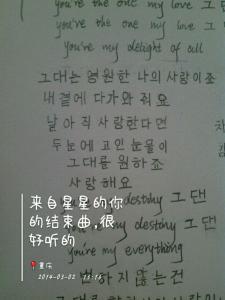 you're the one my love 그댄
you're the one my love 그
you're my delight of all
그대는 영원한 나의 사랑이죠
내 곁에 다가와 줘요
날 아직 사랑한다면
두 눈에 고인 눈물이
그대를 원하죠
사랑해요
destiny 그댄
my destiny 그
you're my everything
변하지 않는건
차
김
来自星星的你
的结束曲,很
好听的
重庆
2014-03-02